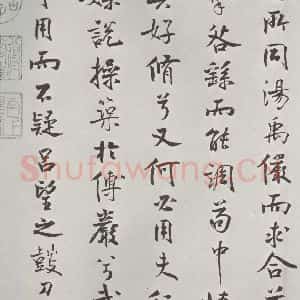 所同湯禹儼而求合兮
摯咎繇而能調苟中情
其好脩兮又何必用夫行
媒說操築於傅巖兮武
丁用而不疑呂望之鼓刀
Shufawang.c